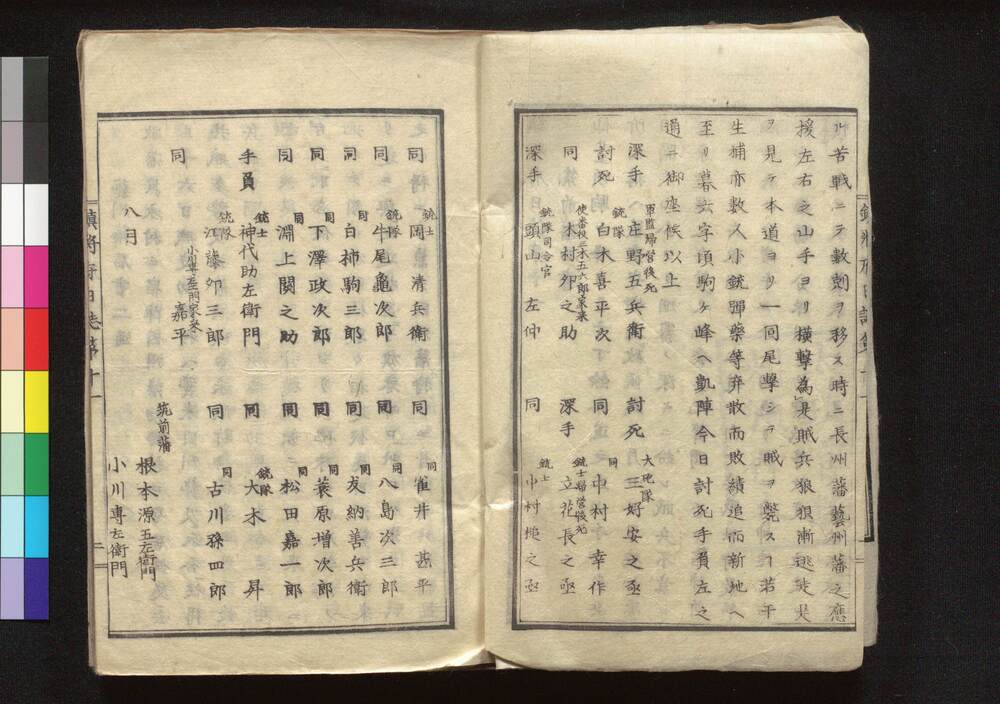 ル苦戰ニテ數刻ヲ移ス時ニ長州藩藝州藩之應
援左右之山手ヨリ横撃為是賊兵狼狽漸逃走是
ヲ見テ本道ヨリ一同尾擊シテ賊ヲ斃スヿ若干
生捕亦數人小銃彈藥等弃散而敗績追而新地ヘ
至リ暮六字頃駒ケ峰ヘ凱陣今日討死手負左之
通ニ御座候以上
軍監歸營後死 大砲隊
深手 庄野五兵衛 討死 三好安之亟
銃隊 同
討死 白木喜平次 同 中村幸作
使番役三木五六郎家来 銃士歸營後死
同 木村夘之助 深手 立花長之亟
銃隊司令官 銃士
深手 頭山左仲 同 中村槌之亟
銃士 同
同 岡清兵衛 同 雀井甚平
銃隊 同
同 牛尾龜次郎 同 八島次三郎
同 同
同 白柿駒三郎 同 友納善兵衛
同 同
同 下澤政次郎 同 蓑原增次郎
同 同
同 淵上閑之助 同 松田嘉一郎
銃士 銃隊
手負 神代助左衛門 同 大木昇
銃隊 同
同 江藤夘三郎 同 古川孫四郎
小川專左衛門家来
同 嘉平
筑前藩
八月 根本源五左衛門
小川專左衛門
鎮將府日誌第十一
二